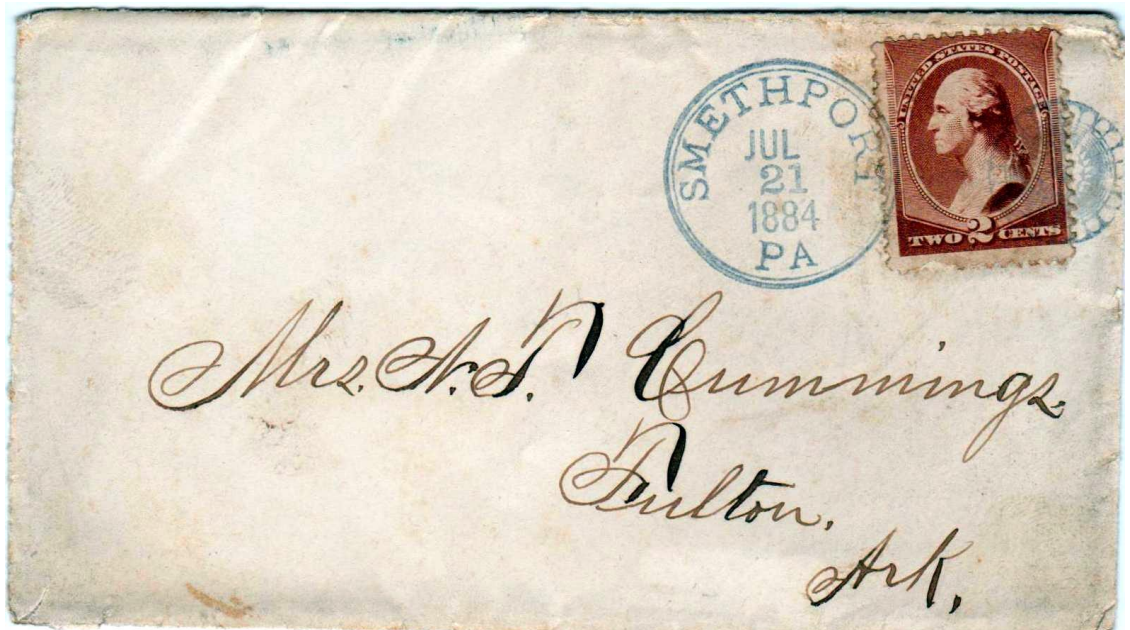 SMETHPORT
JUL
21
1884
PA
UNITED STATES POSTAGE
TWO 2 CENTS
Mrs. N. T. Cummings
Fulton.
Ark.